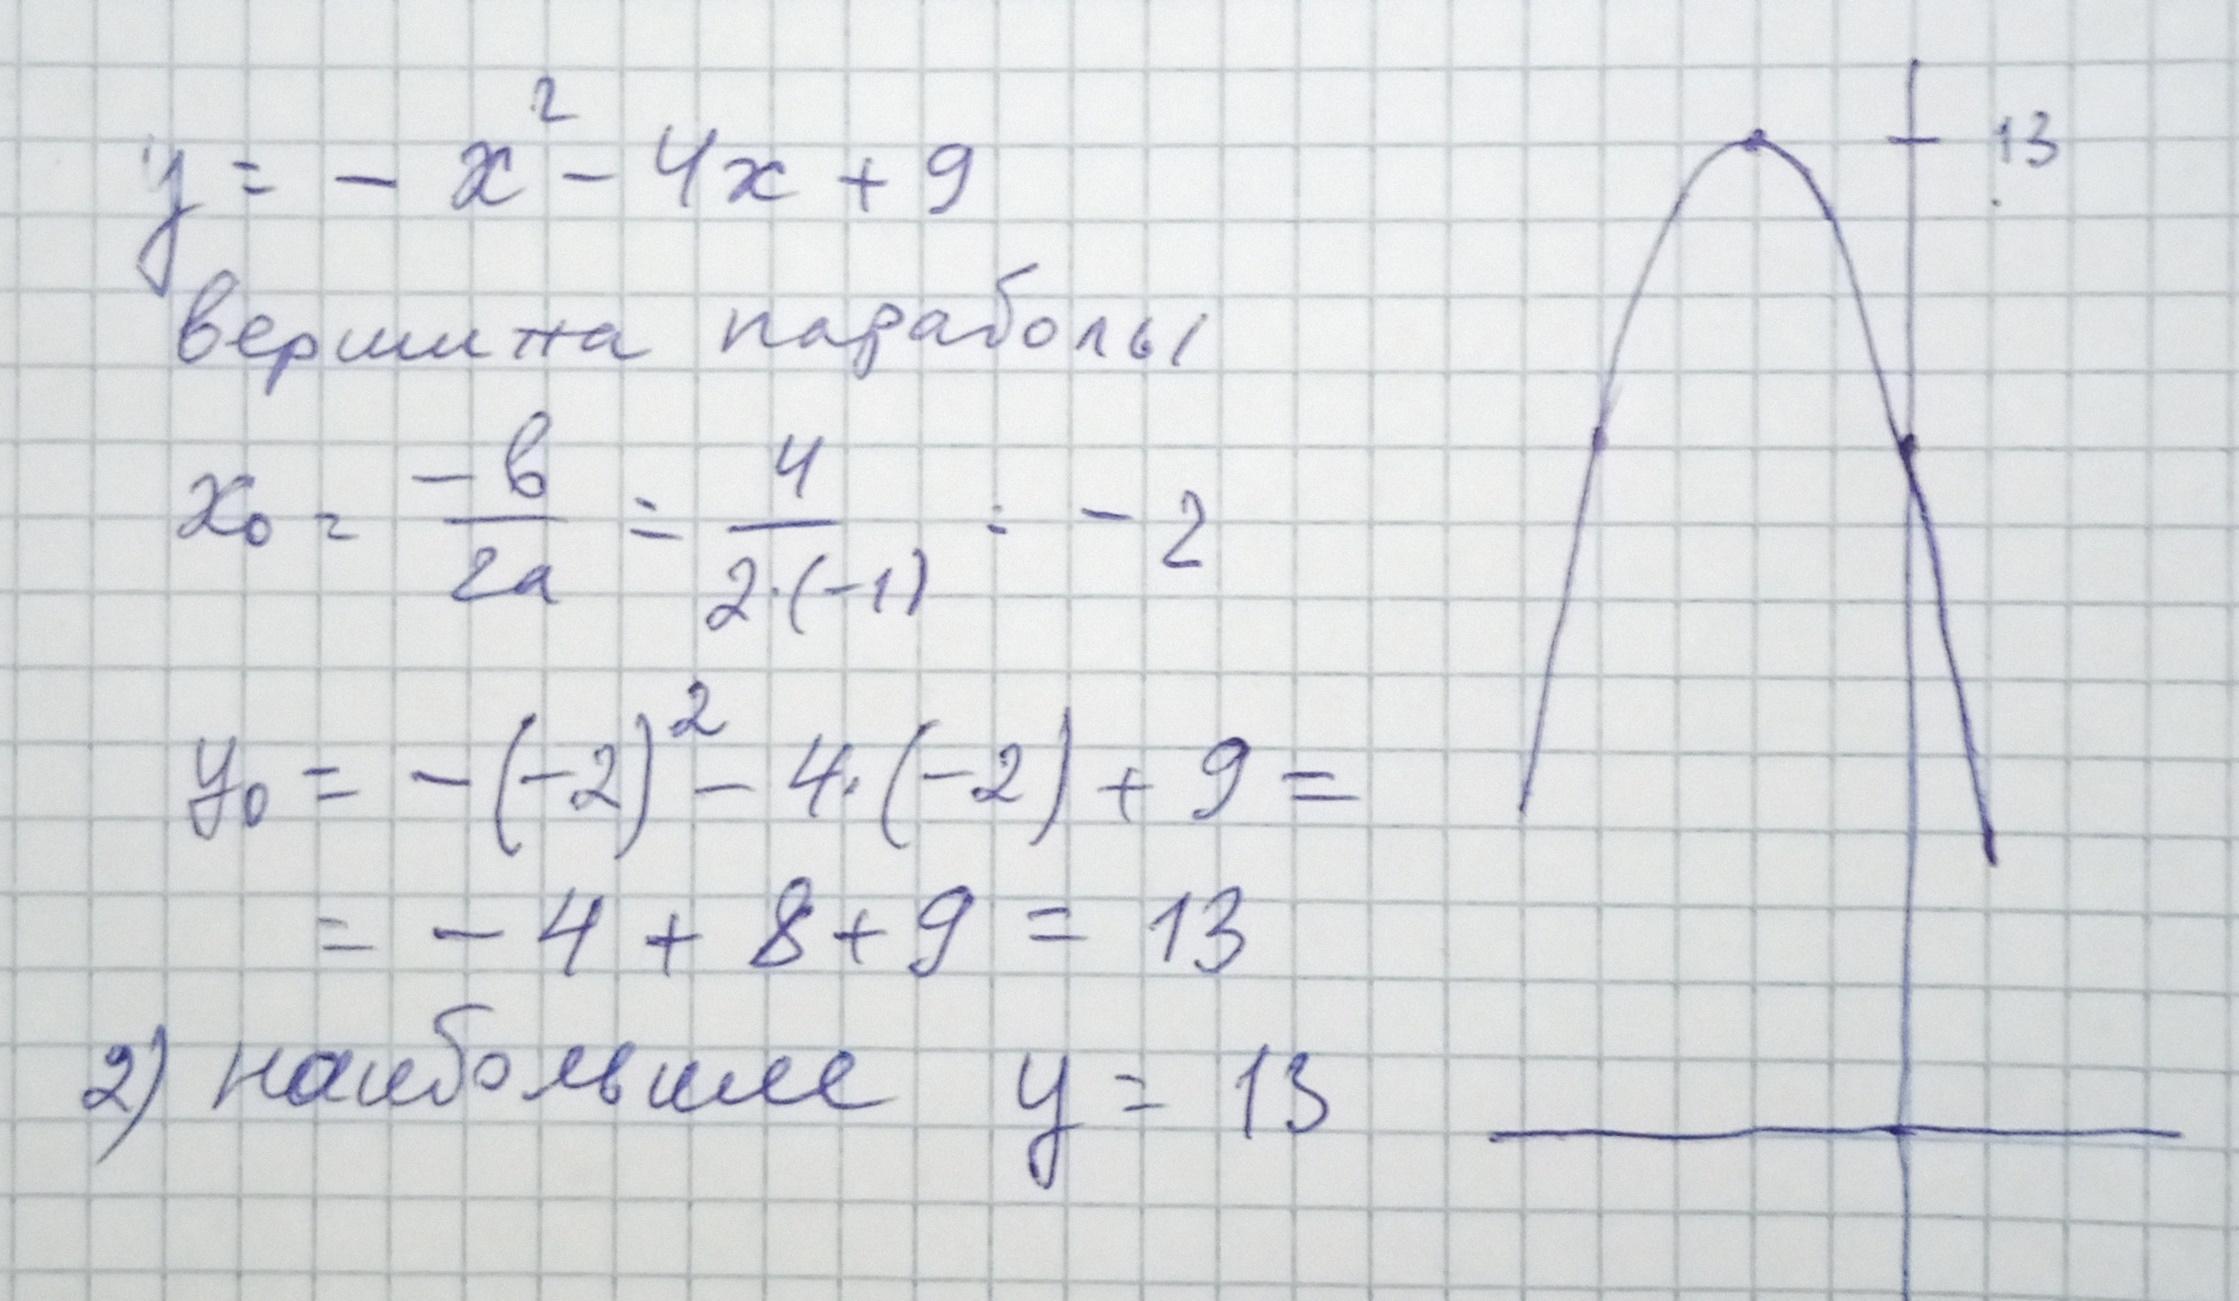 y = - x² - 4x + 9
вершина параболы
x₀ = -b/2a = 4/2·(-1) = - 2
y₀ = -(-2)² - 4·(-2) + 9 =
= - 4 + 8 + 9 = 13
2) наибольшее y = 13
13